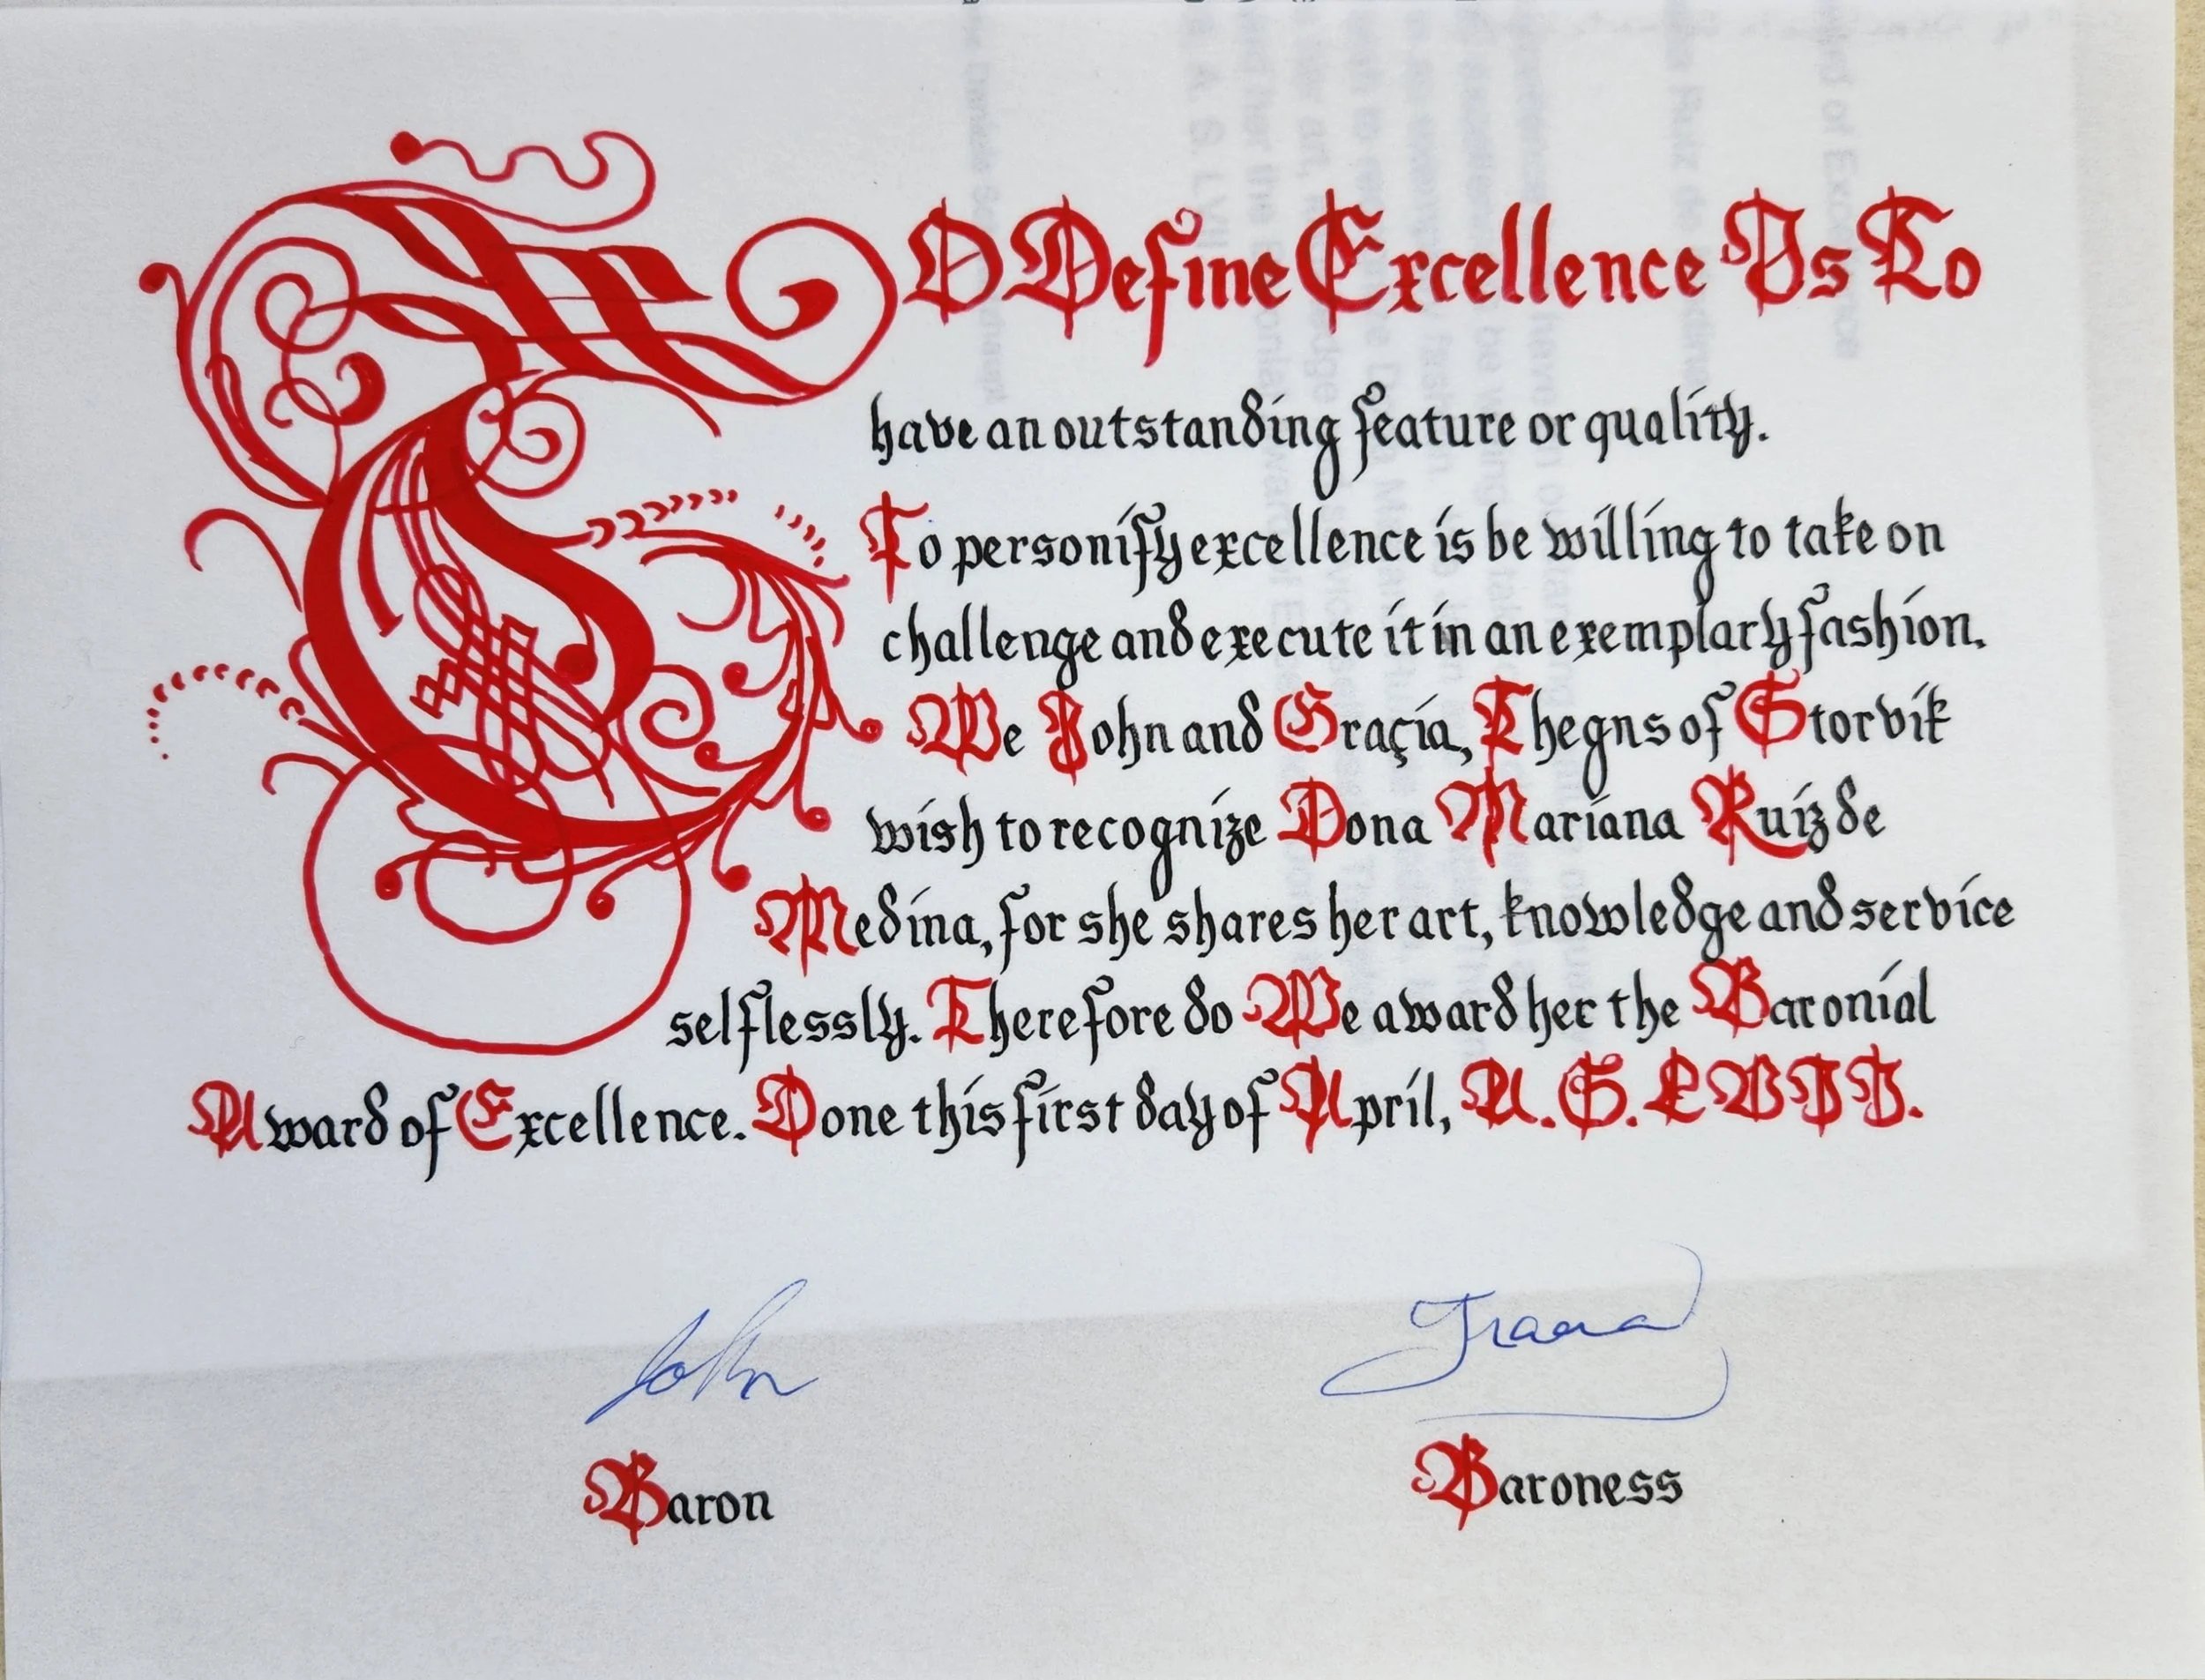 TO Define Excellence Is To
have an outstanding feature or quality.
To personify excellence is be willing to take on
challenge and execute it in an exemplary fashion.
We John and Graçia, Thegns of Storvik
wish to recognize Dona Mariana Ruiz de
Medina, for she shares her art, knowledge and service
selflessly. Therefore do We award her the Baronial
Award of Excellence. Done this first day of April, A.S. LVII.
John
Baron
Baroness